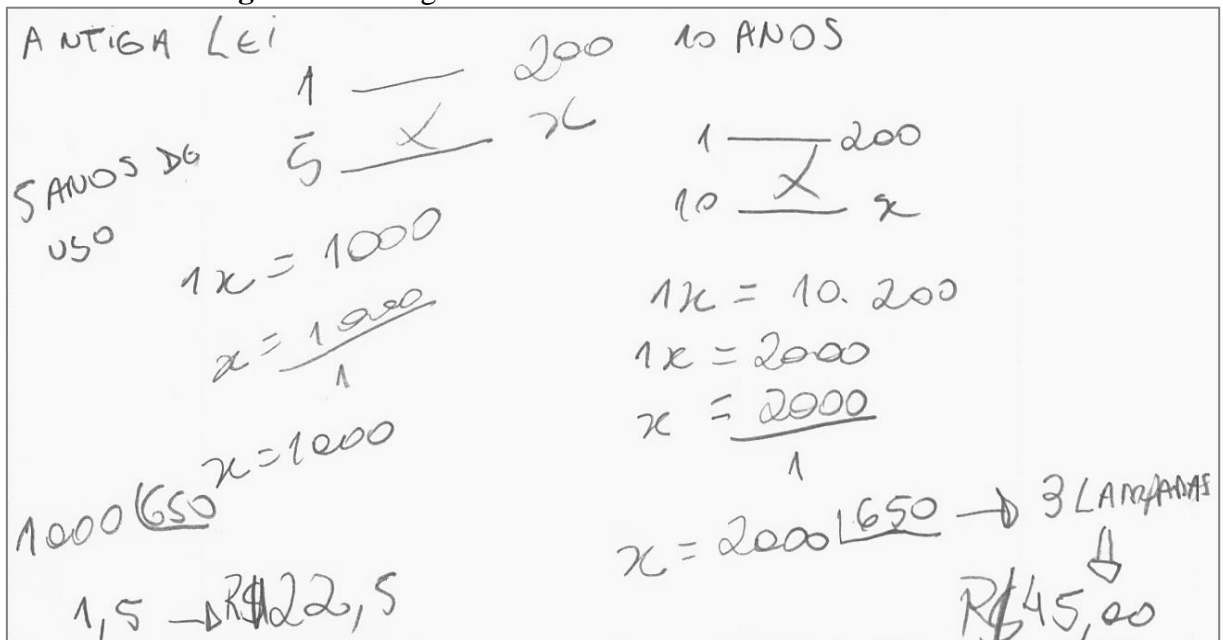 ANTIGA LEI
1 — 200
5 — x
5 ANOS DE
USO
1x = 1000
x = 1000
1
x = 1000
1000 650
1,5 → R$22,5
10 ANOS
1 — 200
10 — x
1x = 10. 200
1x = 2000
x = 2000
1
x = 2000 650 → 3 LAMPADAS
R$45,00